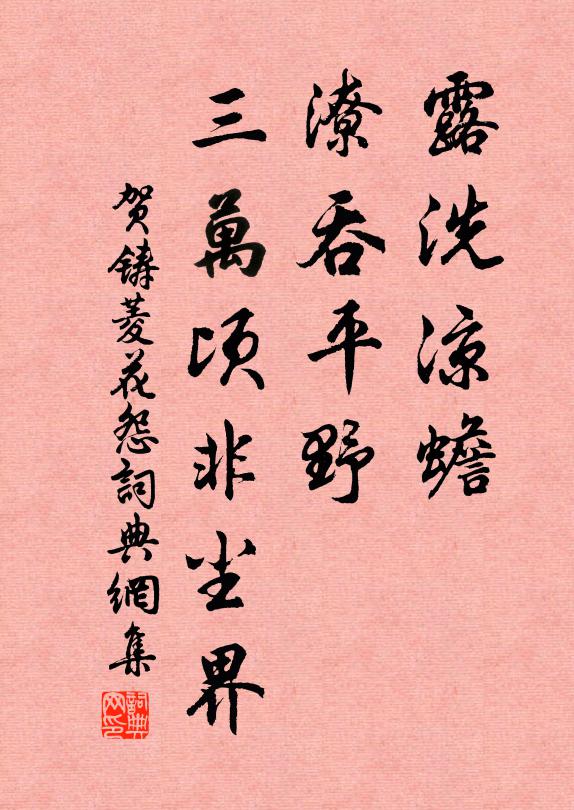 露洗涼蟾
潦吞平野
三萬頃非尘界
贺鑄菱花怨詞典網集
詞典网印